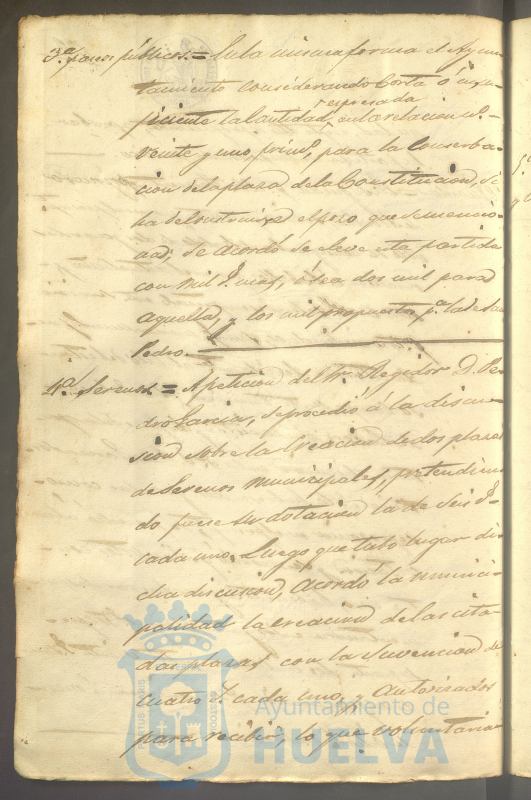 3.ª paseos públicos = En la misma forma el Ayun-
tamiento considerando corta ó insu-
expresada
ficiente la cantidad, en la relacion n.º
veinte y uno, prim.º, para la conserba-
cion de la plaza de la Constitucion, si
ha de construirse el paseo que se mencio-
na, se acordó se eleve esta partida
con mil r.s mas, ó sea dos mil para
aquella, y los mil propuestos p.ª la de San
Pedro.
4.ª Serenos = A peticion del Sr. Regidor D. Pe-
dro Garcia, se procedió á la discu-
sion sobre la creacion de dos plazas
de Serenos municipales, pretendien-
do fuese su dotacion la de seis r.s
cada uno. Luego que tubo lugar di-
cha discusion, acordó la munici-
palidad la creacion de las cita-
das plazas con la subencion de
cuatro r.s cada uno, y autorizados
para recibir, lo que voluntaria-
Ayuntamiento de
HUELVA